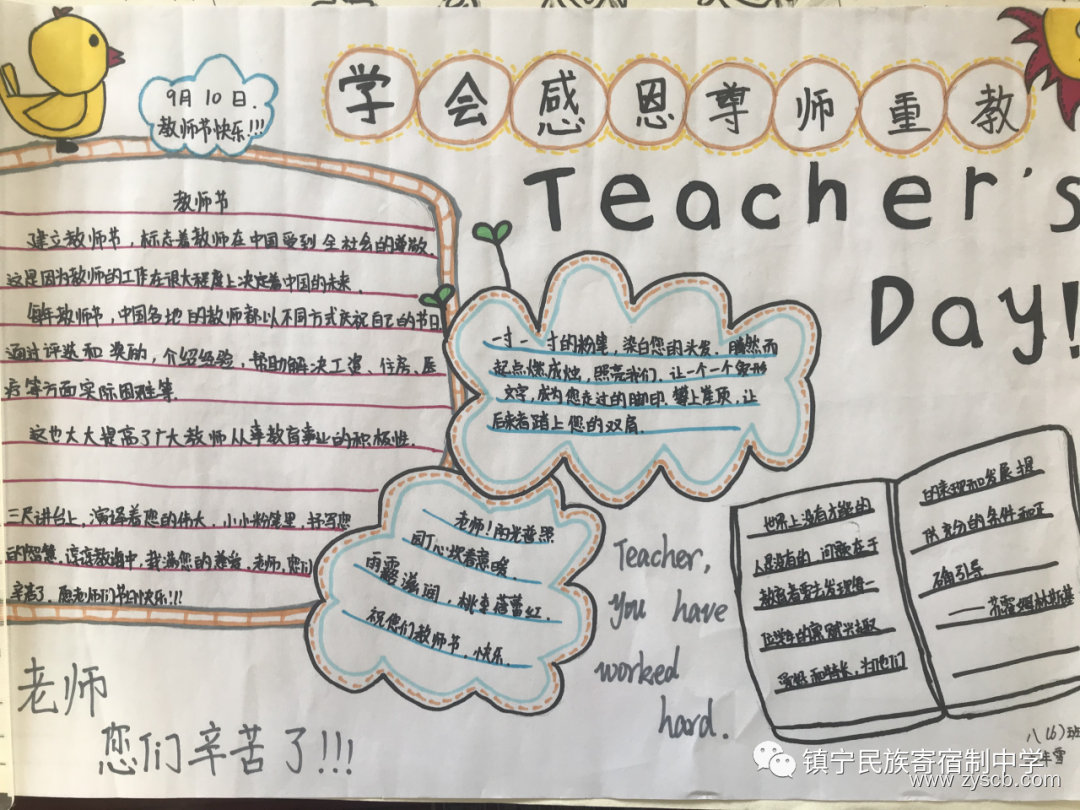 9月10日.
教师节快乐!!!
学会感恩尊师重教
Teacher's
Day!
教师节
建立教师节，标志着教师在中国受到全社会的尊敬.
这是因为教师的工作在很大程度上决定着中国的未来.
每年教师节，中国各地的教师都以不同方式庆祝自己的节日
通过评选和奖励，介绍经验，帮助解决工资、住房、医
疗等方面实际困难等.
这也大大提高了广大教师从事教育事业的积极性.
三尺讲台上，演绎着您的伟大，小小粉笔里，抒写您
的智慧，谆谆教诲中，我满您的
老师，您们
辛苦了，愿老师们节日快乐!!!
一寸一寸的粉笔，染白您的头发.
然而
起点燃成烛，照亮我们.让一个一个象形
文字，成为您走过的脚印.攀上崖顶，让
后来者踏上您的双肩.
老师!阳光普照
园丁心坎春意暖.
雨露滋润，桃李蓓蕾红.
祝您们教师节.快乐.
Teacher,
You have
worked
hard.
世界上没有才能的
人是没有的，问题在于
教育者要去发现每一
位学生的禀赋兴趣
爱好和特长，为他们
的表现和发展提
供充分的条件和正
确引导
——苏霍姆林斯基
老师
您们辛苦了!!!
八(6)班
雪
镇宁民族寄宿制中学
www.zyscb.com